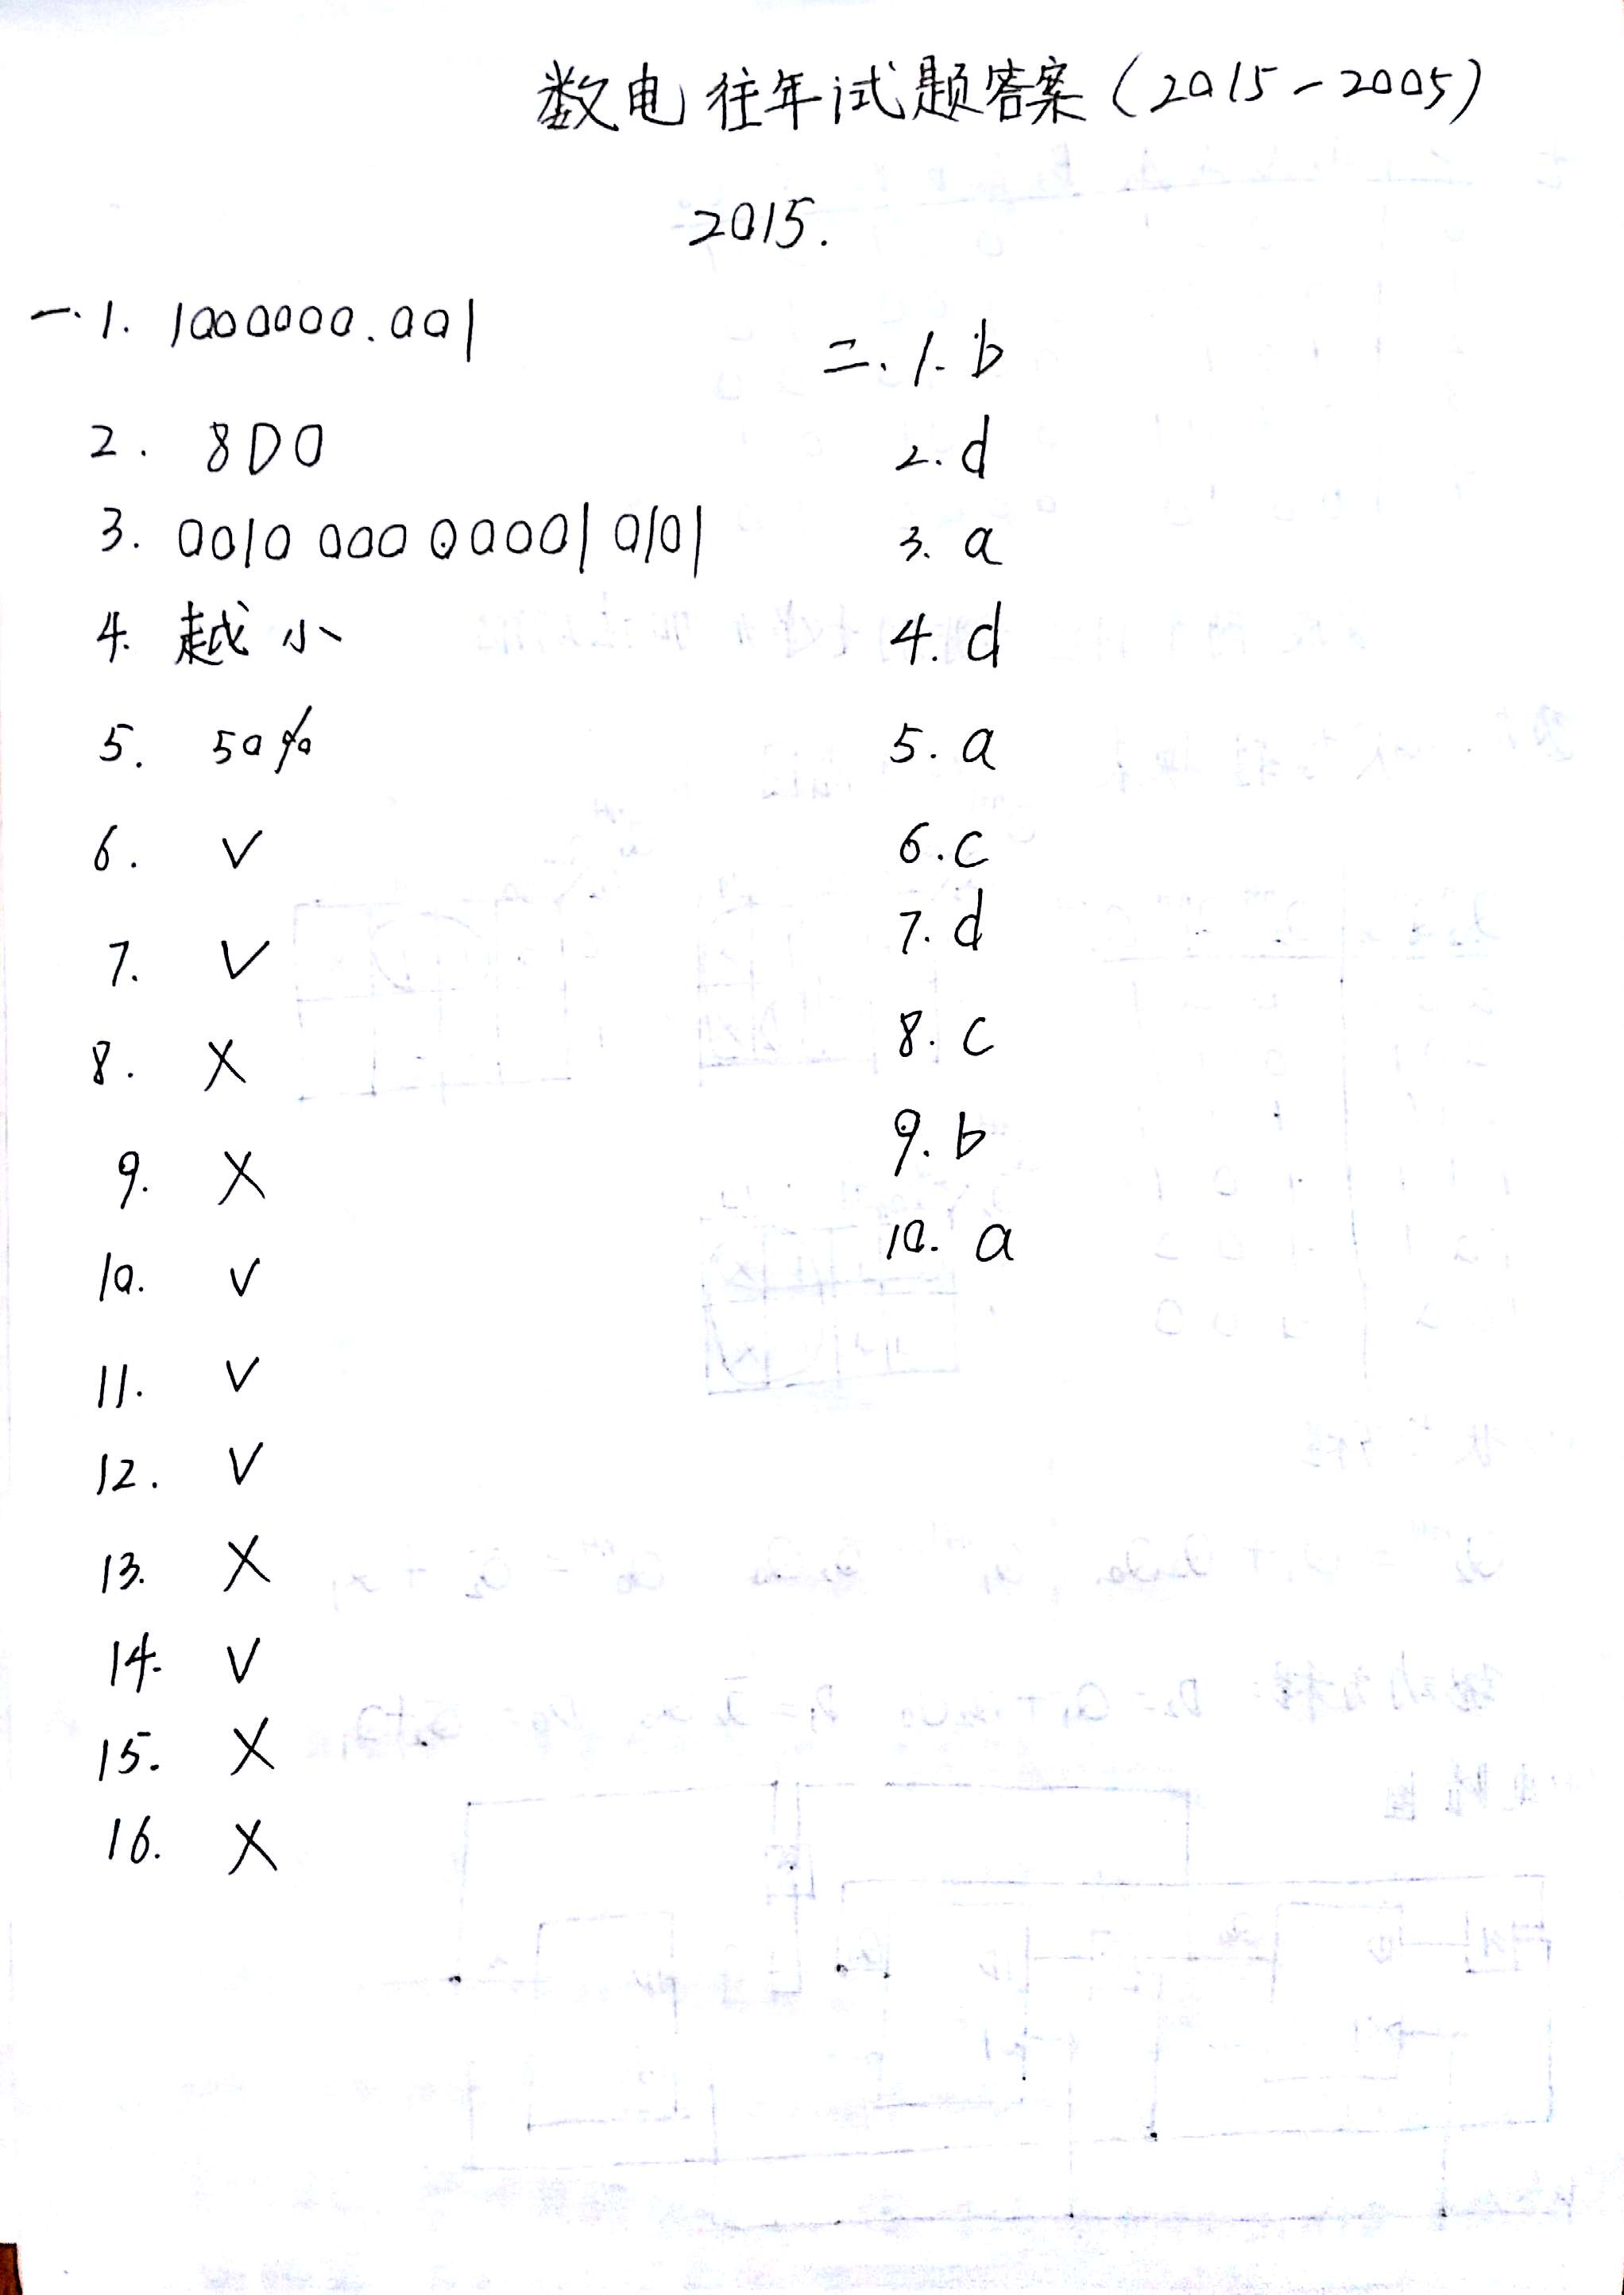 数电往年试题答案(2015-2005)
2015.
一.1. 1000000.001
2. 8D0
3. 0010 000 0 00001 0101
4. 越小
5. 50%
6. √
7. √
8. ×
9. ×
10. √
11. √
12. √
13. ×
14. √
15. ×
16. ×
二.1. b
2. d
3. a
4. d
5. a
6. c
7. d
8. c
9. b
10. a